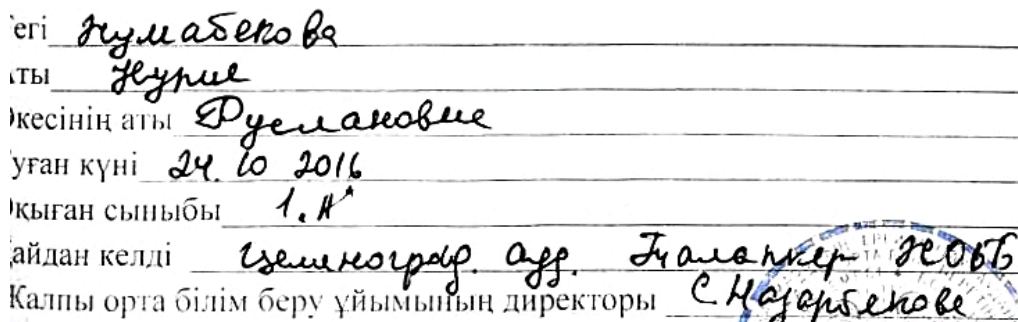 егі Жумабекова
ты Нурие
кесінің аты Руслановне
уған күні 24. 10 2016
қыған сыныбы 1. А"
айдан келді Целиноград. ауд. Талапкер ЖОББ
Жалпы орта білім беру ұйымының директоры С Назарбекова